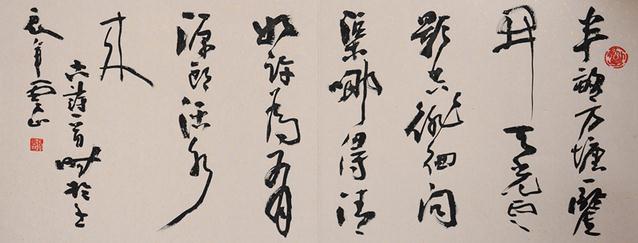 半畝方塘一鑒
開天光雲
影共徘徊問
渠哪得清
如許為有
源頭活水
來
古詩一首時於壬
辰年